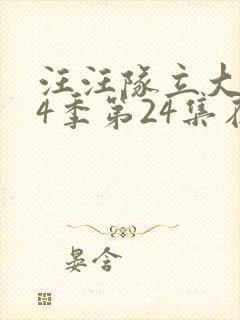 汪汪队立大
4季第24集
晏含